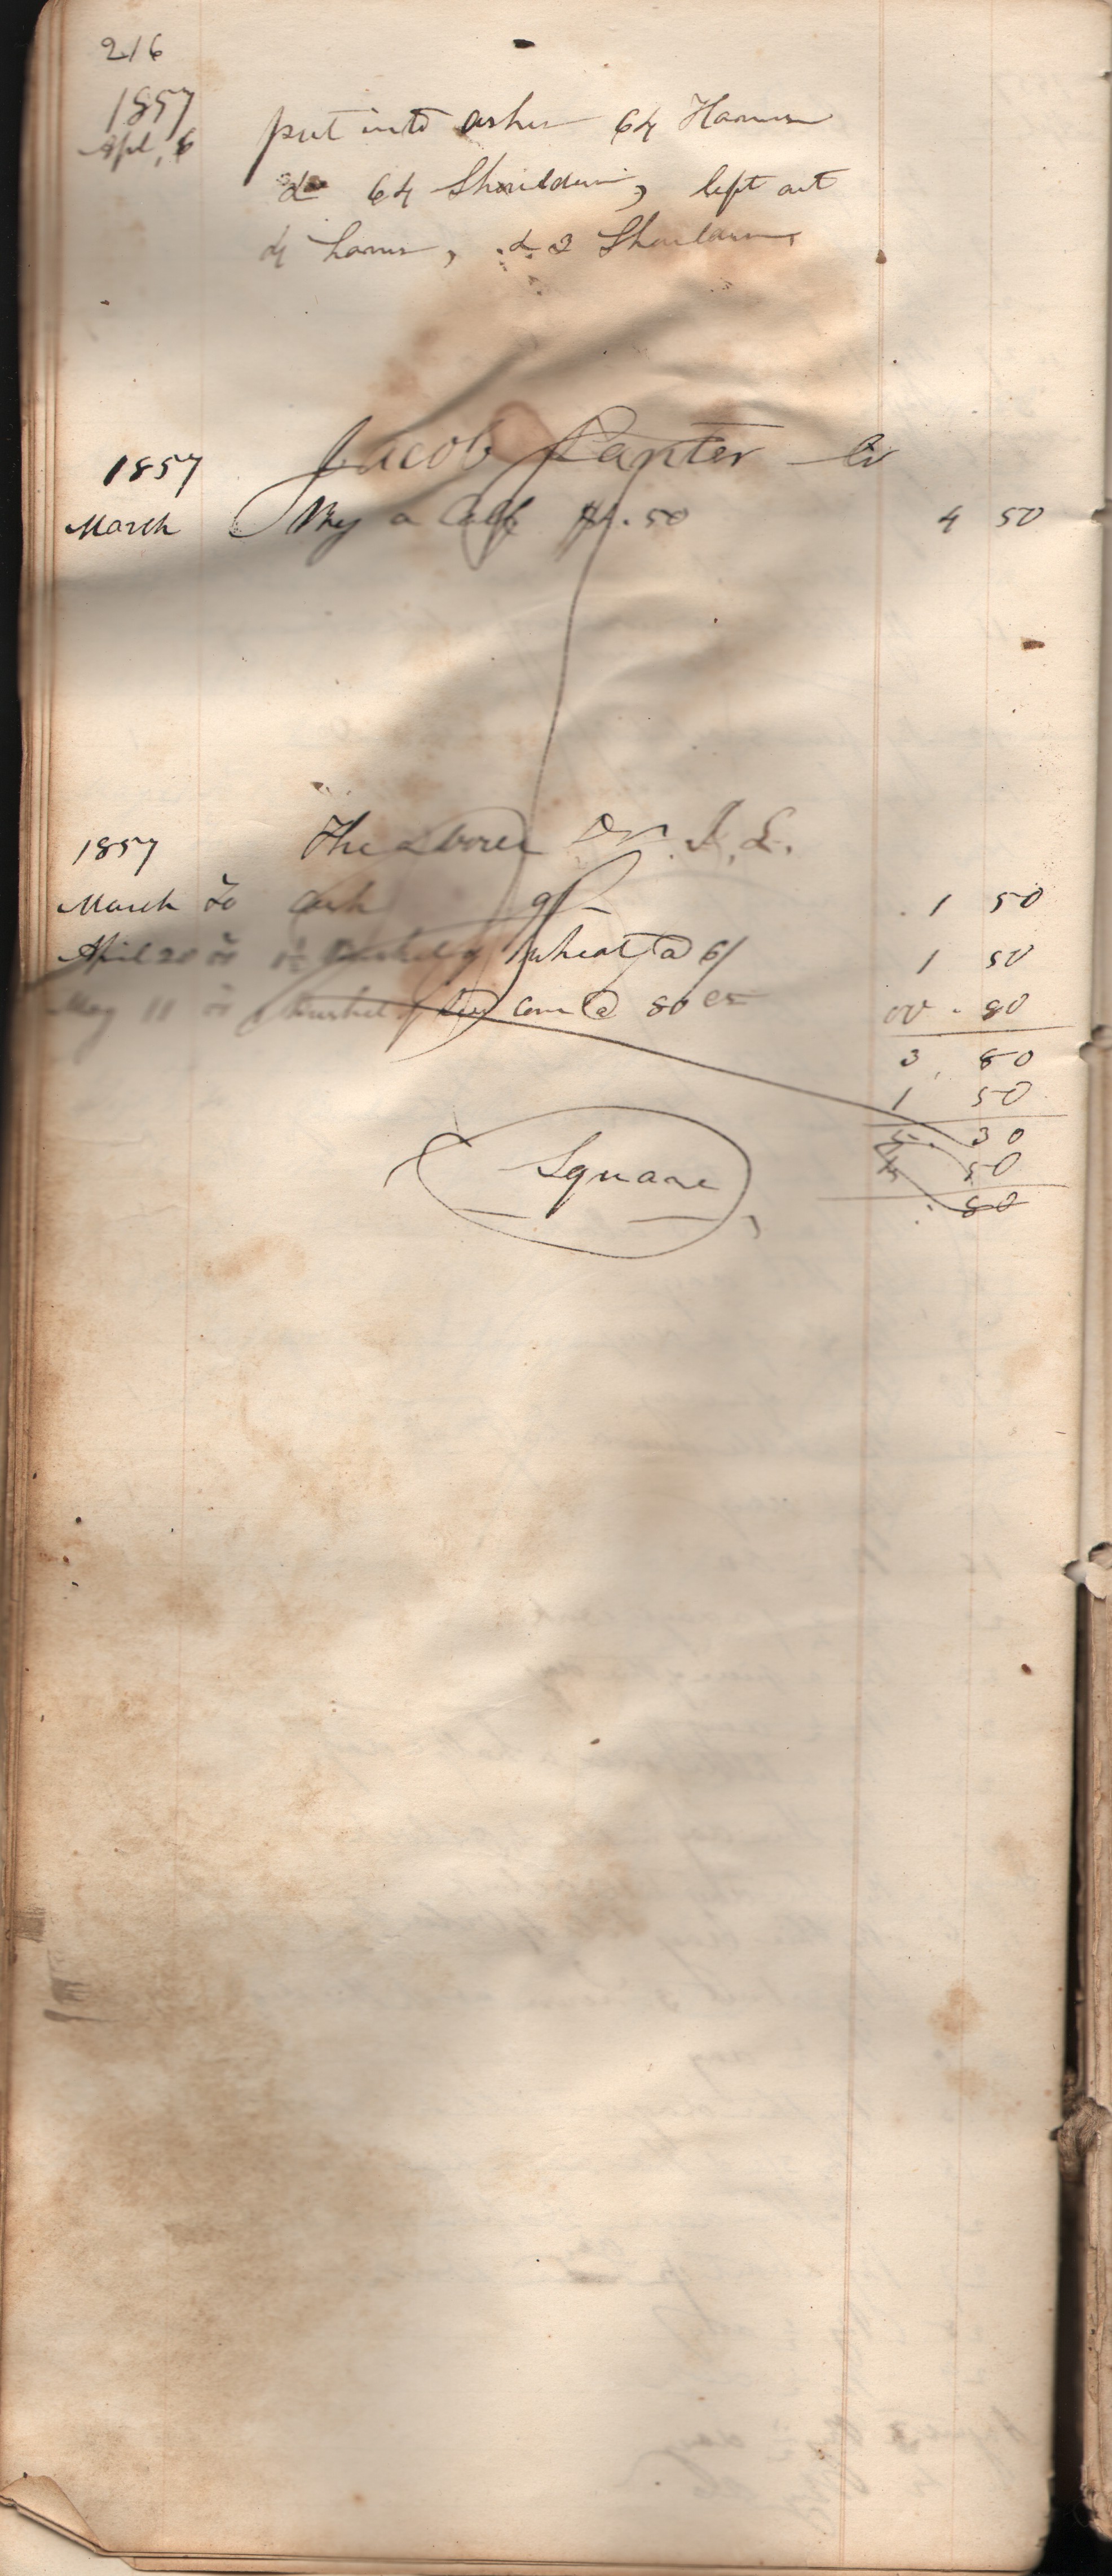 216
1857
Apl, 6 put into ashes 64 Hams
& 64 Shoulders, left out
4 hams, & 2 Shoulders
1857 Jacob Panter Cr
March By a Calf $4.50 4 50
1857 The above Dr. J. L.
March To Cash 9/ 1 50
April 20 To 1½ bushel of wheat @ 6/ 1 50
May 11 To bushel of corn @ 80 cts 00 . 80
3, 80
1 50
5. 30
4 50
. 80
Square,